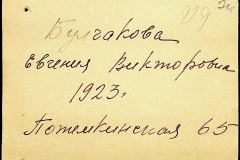 Булгакова
Евгения Викторовна
1923г
Потемкинская 65